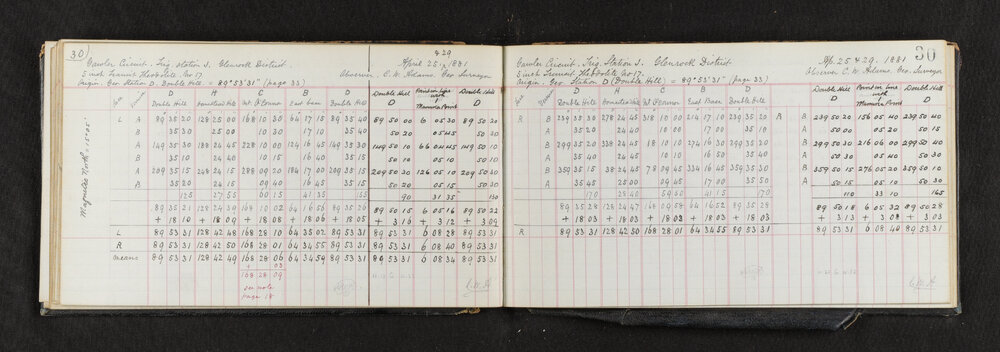 30
& 29
Cawler Circuit. Trig. Station J. Glenrock District.
April 25, 1881
5 inch Transit Theodolite No 17.
Observer C. W. Adams. Geo. Surveyor
Origin. Geo. Station D. Double Hill = 89° 53' 31" (page 33)
D H C B D Double Hill Points in line with Memora Point Double Hill
Double Hill Homestead Hill Mt. O'Connor East base Double Hill D D
L A 89 35 20 128 25 00 168 10 30 64 17 15 89 35 40 89 50 00 6 05 30 89 50 20
B 35 30 25 00 10 30 17 10 35 40 50 20 05 45 50 20
A 149 35 30 188 24 45 228 10 00 124 16 45 149 35 30 149 50 10 66 04 45 149 50 10
B 35 10 24 40 10 15 16 40 35 35 50 10 05 10 50 10
A 209 35 15 248 24 15 288 09 20 184 17 00 209 35 15 209 50 30 126 05 10 209 50 30
B 35 20 24 15 09 40 16 45 35 15 50 20 05 15 50 30
125 27 55 60 15 41 35 155 90 31 35 130
89 35 21 128 24 39 168 10 02 64 16 56 89 35 26 89 50 15 6 05 16 89 50 22
+ 18 10 + 18 09 + 18 08 + 18 06 + 18 05 + 3 16 + 3 12 + 3 09
L 89 53 31 128 42 48 168 28 10 64 35 02 89 53 31 89 53 31 6 08 28 89 53 31
R 89 53 31 128 42 50 168 28 01 64 34 55 89 53 31 89 53 31 6 08 40 89 53 31
means 89 53 31 128 42 49 168 28 06 64 34 59 89 53 31 89 53 31 6 08 34 89 53 31
+ 03
168 28 09
see note
page 18
C.W.A
Magnetic North = 15° 05'
30
Cawler Circuit. Trig. Station J. Glenrock District
Ap. 25 & 29. 1881
5 inch Transit Theodolite No 17.
Observer C. W. Adams. Geo. Surveyor
Origin. Geo. Station D (Double Hill) = 89° 53' 31" (page 33)
D H C B D Double Hill Points in line with Memora Point Double Hill
Double Hill Homestead Hill Mt. O'Connor East Base Double Hill D D
R B 239 35 30 278 24 45 318 10 00 214 17 10 239 35 20 R B 239 50 20 156 05 40 239 50 40
A 35 40 24 40 10 00 17 00 35 10 A 50 00 05 20 50 15
B 299 35 20 338 24 40 18 10 10 274 16 30 299 35 20 B 299 50 20 216 06 00 299 50 40
A 35 40 24 45 10 10 16 50 35 40 A 50 30 05 40 50 30
B 359 35 15 38 24 45 78 09 45 334 16 45 359 35 30 B 359 50 15 276 05 20 359 50 10
A 35 45 25 00 09 45 17 00 35 50 A 50 15 05 10 50 30
170 28 40 59 50 41 15 170 110 33 10 165
89 35 28 128 24 47 168 09 58 64 16 52 89 35 28 89 50 18 6 05 32 89 50 28
+ 18 03 + 18 03 + 18 03 + 18 03 + 18 03 + 3 13 + 3 08 + 3 03
R 89 53 31 128 42 50 168 28 01 64 34 55 89 53 31 89 53 31 6 08 40 89 53 31
C.W.A